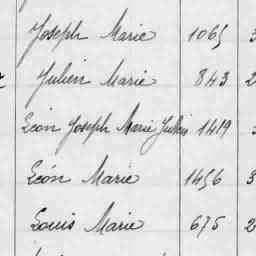 Joseph Marie 1065 3
Julien Marie 843 2
Léon Joseph Marie Julien 1419
Léon Marie 1456 3
Louis Marie 675 2